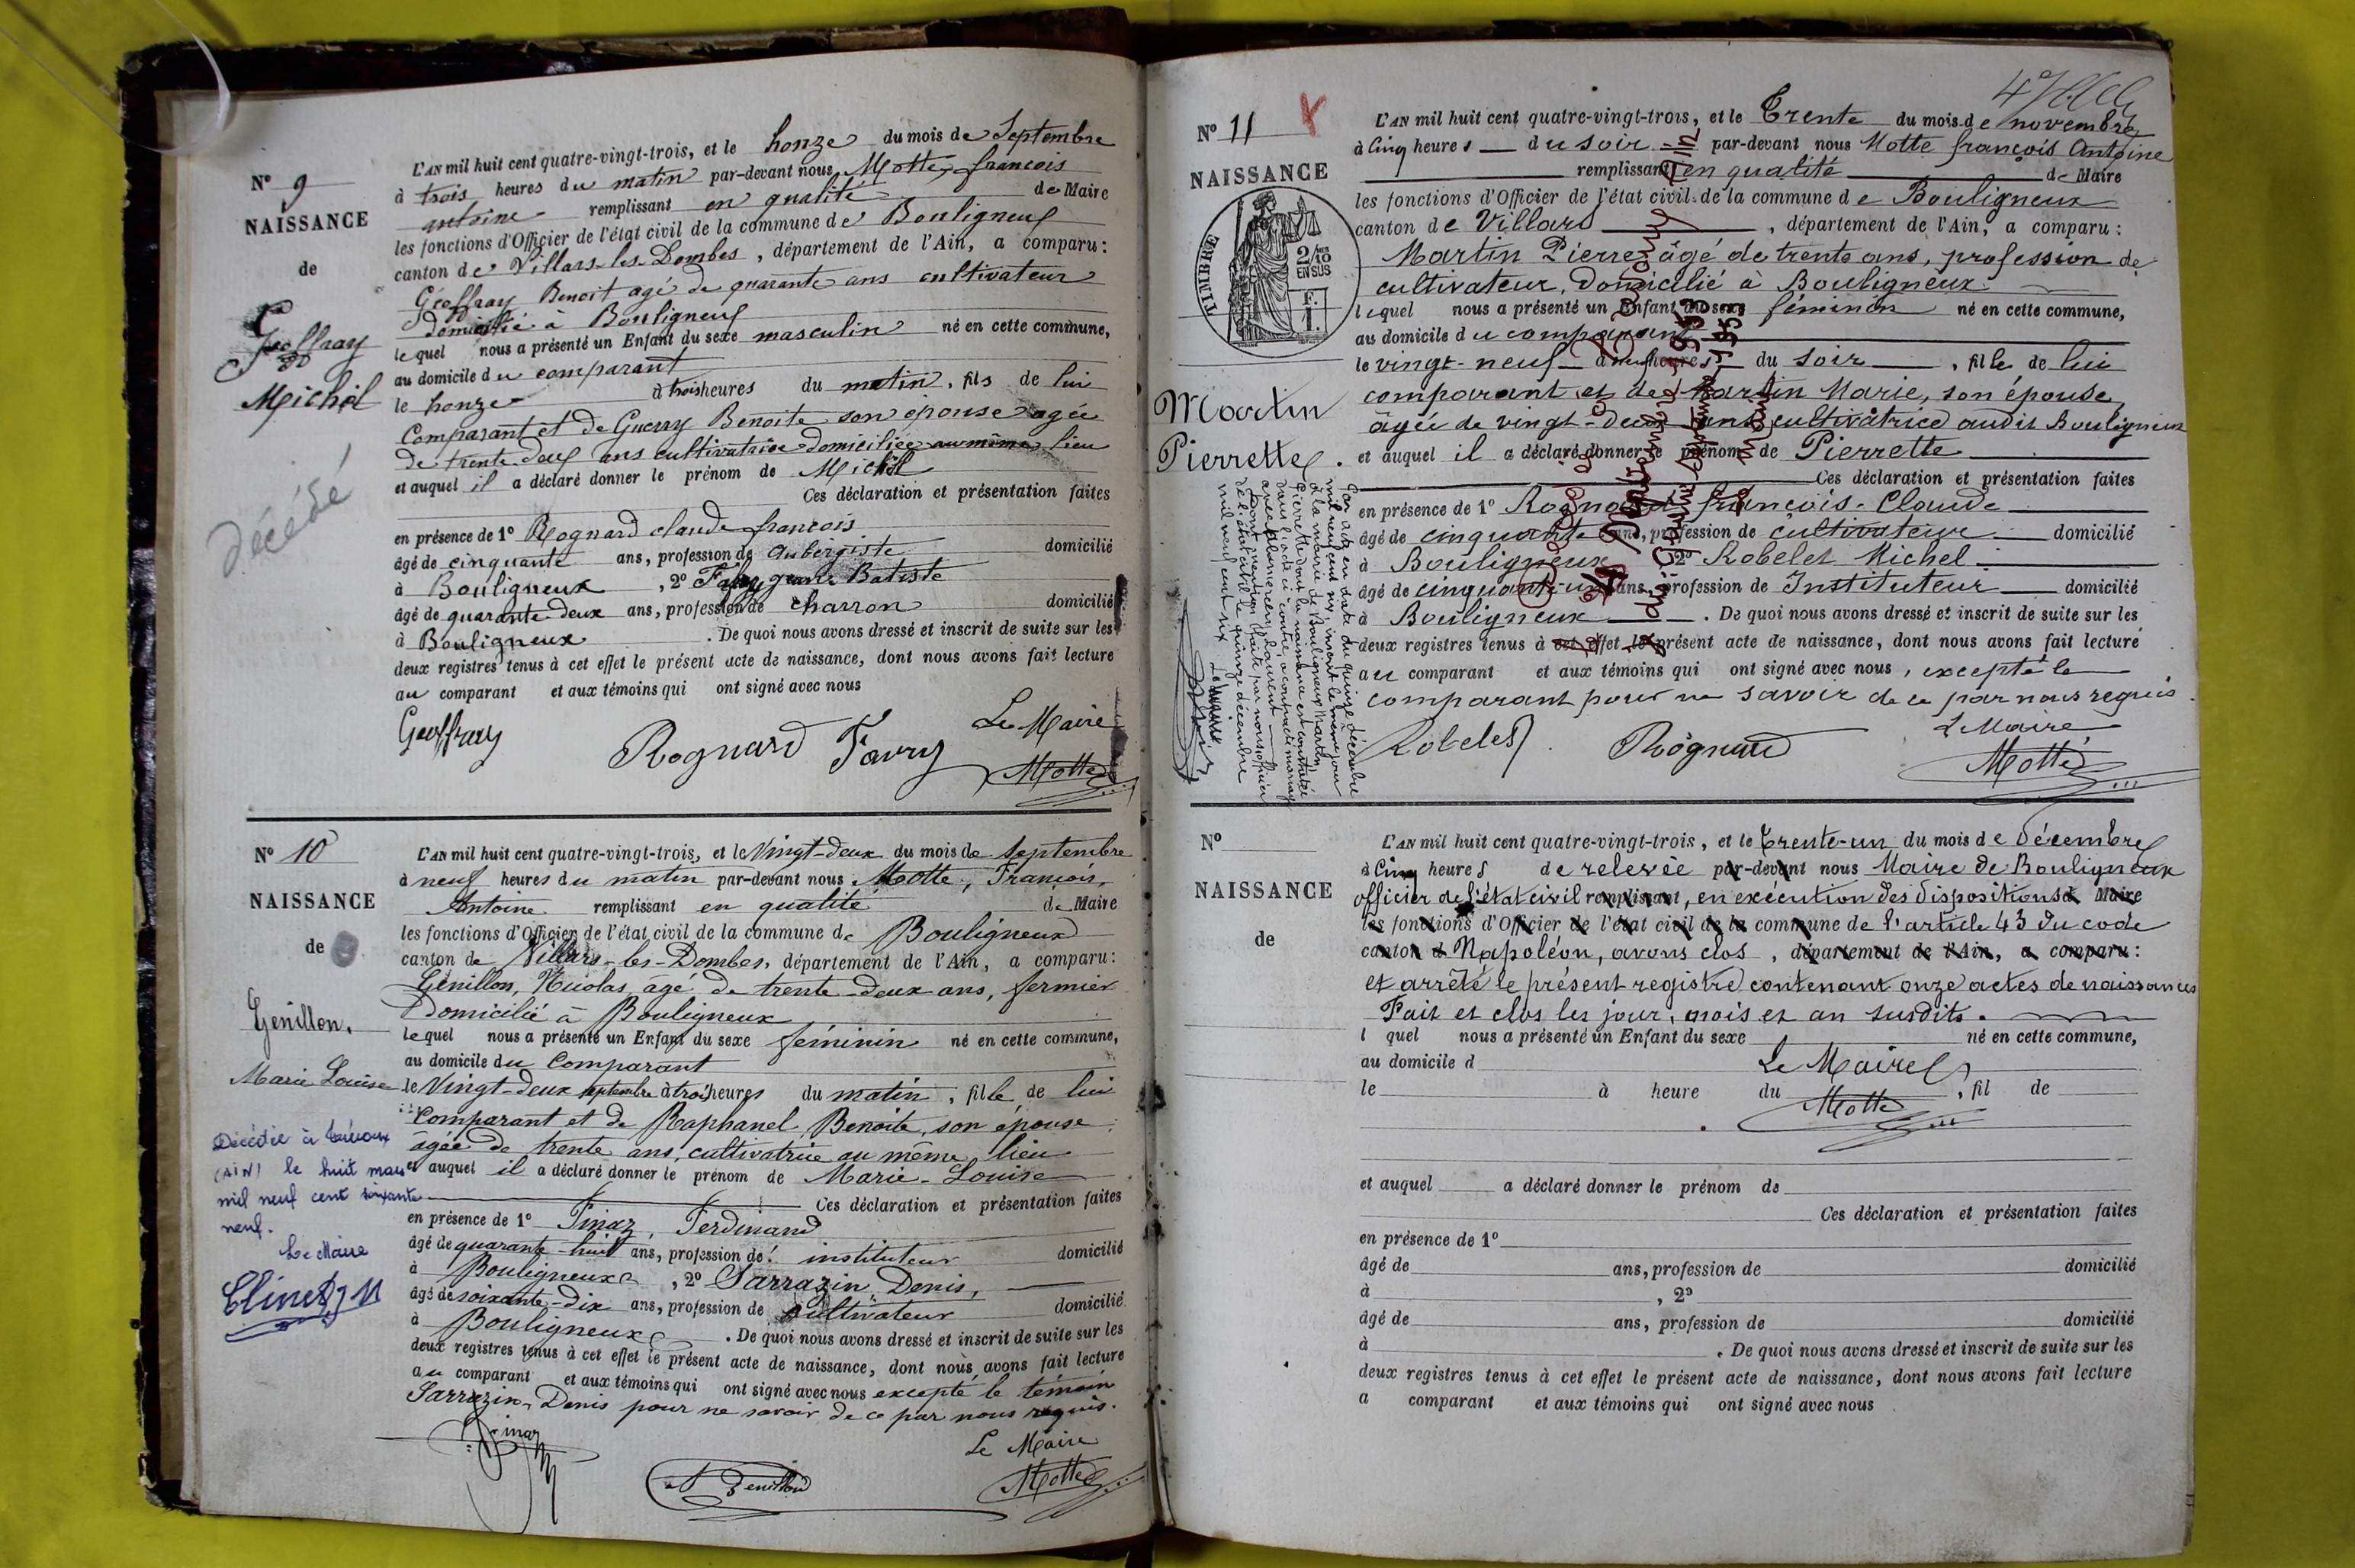 N° 9
NAISSANCE
de
Geoffray
Michel
décédé
L'AN mil huit cent quatre-vingt-trois, et le honze du mois de Septembre
à trois heures du matin par-devant nous Motte, francois
antoine remplissant en qualité de Maire
les fonctions d'Officier de l'état civil de la commune de Bouligneux
canton de Villars-les-Dombes, département de l'Ain, a comparu:
Géoffray Benoit agé de quarante ans cultivateur
domicilié à Bouligneux
lequel nous a présenté un Enfant du sexe masculin né en cette commune,
au domicile du comparant
le honze à trois heures du matin, fils de lui
Comparant et de Guerry Benoite son épouse agée
de trente deux ans cultivatrice domiciliée au même lieu
et auquel il a déclaré donner le prénom de Michel
Ces déclaration et présentation faites
en présence de 1° Rognard claude francois
âgé de cinquante ans, profession de aubergiste domicilié
à Bouligneux, 2° Batiste
âgé de quarante deux ans, profession de charron domicilié
à Bouligneux. De quoi nous avons dressé et inscrit de suite sur les
deux registres tenus à cet effet le présent acte de naissance, dont nous avons fait lecture
au comparant et aux témoins qui ont signé avec nous
Geoffray Rognard Favry Le Maire
Motte
N° 10
NAISSANCE
de
Génillon,
Marie Louise
Décédée à Trévoux
(AIN) le huit mars
mil neuf cent soixante
neuf.
Le Maire
L'AN mil huit cent quatre-vingt-trois, et le Vingt-deux du mois de Septembre
à neuf heures du matin par-devant nous Motte, François,
Antoine remplissant en qualité de Maire
les fonctions d'Officier de l'état civil de la commune de Bouligneux
canton de Villars-les-Dombes, département de l'Ain, a comparu:
Génillon, Nicolas, âgé de trente-deux ans, fermier
Domicilié à Bouligneux
lequel nous a présenté un Enfant du sexe féminin né en cette commune,
au domicile du Comparant
le Vingt-deux septembre à trois heures du matin, fille de lui
Comparant et de Raphanel, Benoite, son épouse
âgée de trente ans, cultivatrice au même lieu
et auquel il a déclaré donner le prénom de Marie-Louise
Ces déclaration et présentation faites
en présence de 1° Finaz, Ferdinand
âgé de quarante-huit ans, profession de instituteur domicilié
à Bouligneux, 2° Sarrazin, Denis,
âgé de soixante-dix ans, profession de cultivateur domicilié
à Bouligneux. De quoi nous avons dressé et inscrit de suite sur les
deux registres tenus à cet effet le présent acte de naissance, dont nous avons fait lecture
au comparant et aux témoins qui ont signé avec nous excepté le témoin
Sarrazin, Denis pour ne savoir de ce par nous requis.
Finaz
Le Maire
Genillon Motte
N° 11
NAISSANCE
TIMBRE
2/10
EN SUS
F.
1.
Martin
Pierrette.
L'AN mil huit cent quatre-vingt-trois, et le Trente du mois de novembre
à Cinq heures du soir par-devant nous Motte françois Antoine
remplissant en qualité de Maire
les fonctions d'Officier de l'état civil de la commune de Bouligneux
canton de Villars, département de l'Ain, a comparu:
Martin Pierre, âgé de trente ans, profession de
cultivateur, Domicilié à Bouligneux.
lequel nous a présenté un Enfant du sexe féminin né en cette commune,
au domicile du comparant
le vingt-neuf à neuf heures du soir, fille de lui
comparant et de Martin Marie, son épouse,
âgée de vingt-deux ans cultivatrice audit Bouligneux
et auquel il a déclaré donner le prénom de Pierrette
Ces déclaration et présentation faites
en présence de 1° Rognard françois-Claude
âgé de cinquante ans, profession de cultivateur domicilié
à Bouligneux 2° Robelet Michel
âgé de cinquante-un ans, profession de Instituteur domicilié
à Bouligneux. De quoi nous avons dressé et inscrit de suite sur les
deux registres tenus à cet effet le présent acte de naissance, dont nous avons fait lecture
au comparant et aux témoins qui ont signé avec nous, excepté le
comparant pour ne savoir de ce par nous requis.
Robelet Rognard Le Maire,
Motte
Par acte en date du quinze décembre
mil neuf cent six, inscrit le même jour
à la mairie de Bouligneux, Martin
Pierrette dont la naissance est constatée
dans l'acte ci contre, a contracté mariage
avec
Dont mention faite par nous officier
de l'état civil le quinze décembre
mil neuf cent six
Le Maire
N°
NAISSANCE
de
L'AN mil huit cent quatre-vingt-trois, et le Trente-un du mois de Décembre
à Cinq heures de relevée par-devant nous Maire de Bouligneux
officier de l'état civil remplissant, en exécution des dispositions de Maire
les fonctions d'Officier de l'état civil de la commune de l'article 43 du code
canton d Napoléon, avons clos, département de l'Ain, a comparu:
et arrêté le présent registre contenant onze actes de naissances
Fait et clos les jour, mois et an susdits.
l quel nous a présenté un Enfant du sexe né en cette commune,
au domicile d Le Maire
le à heure du Motte, fil de
et auquel a déclaré donner le prénom de
Ces déclaration et présentation faites
en présence de 1°
âgé de ans, profession de domicilié
à , 2°
âgé de ans, profession de domicilié
à . De quoi nous avons dressé et inscrit de suite sur les
deux registres tenus à cet effet le présent acte de naissance, dont nous avons fait lecture
a comparant et aux témoins qui ont signé avec nous